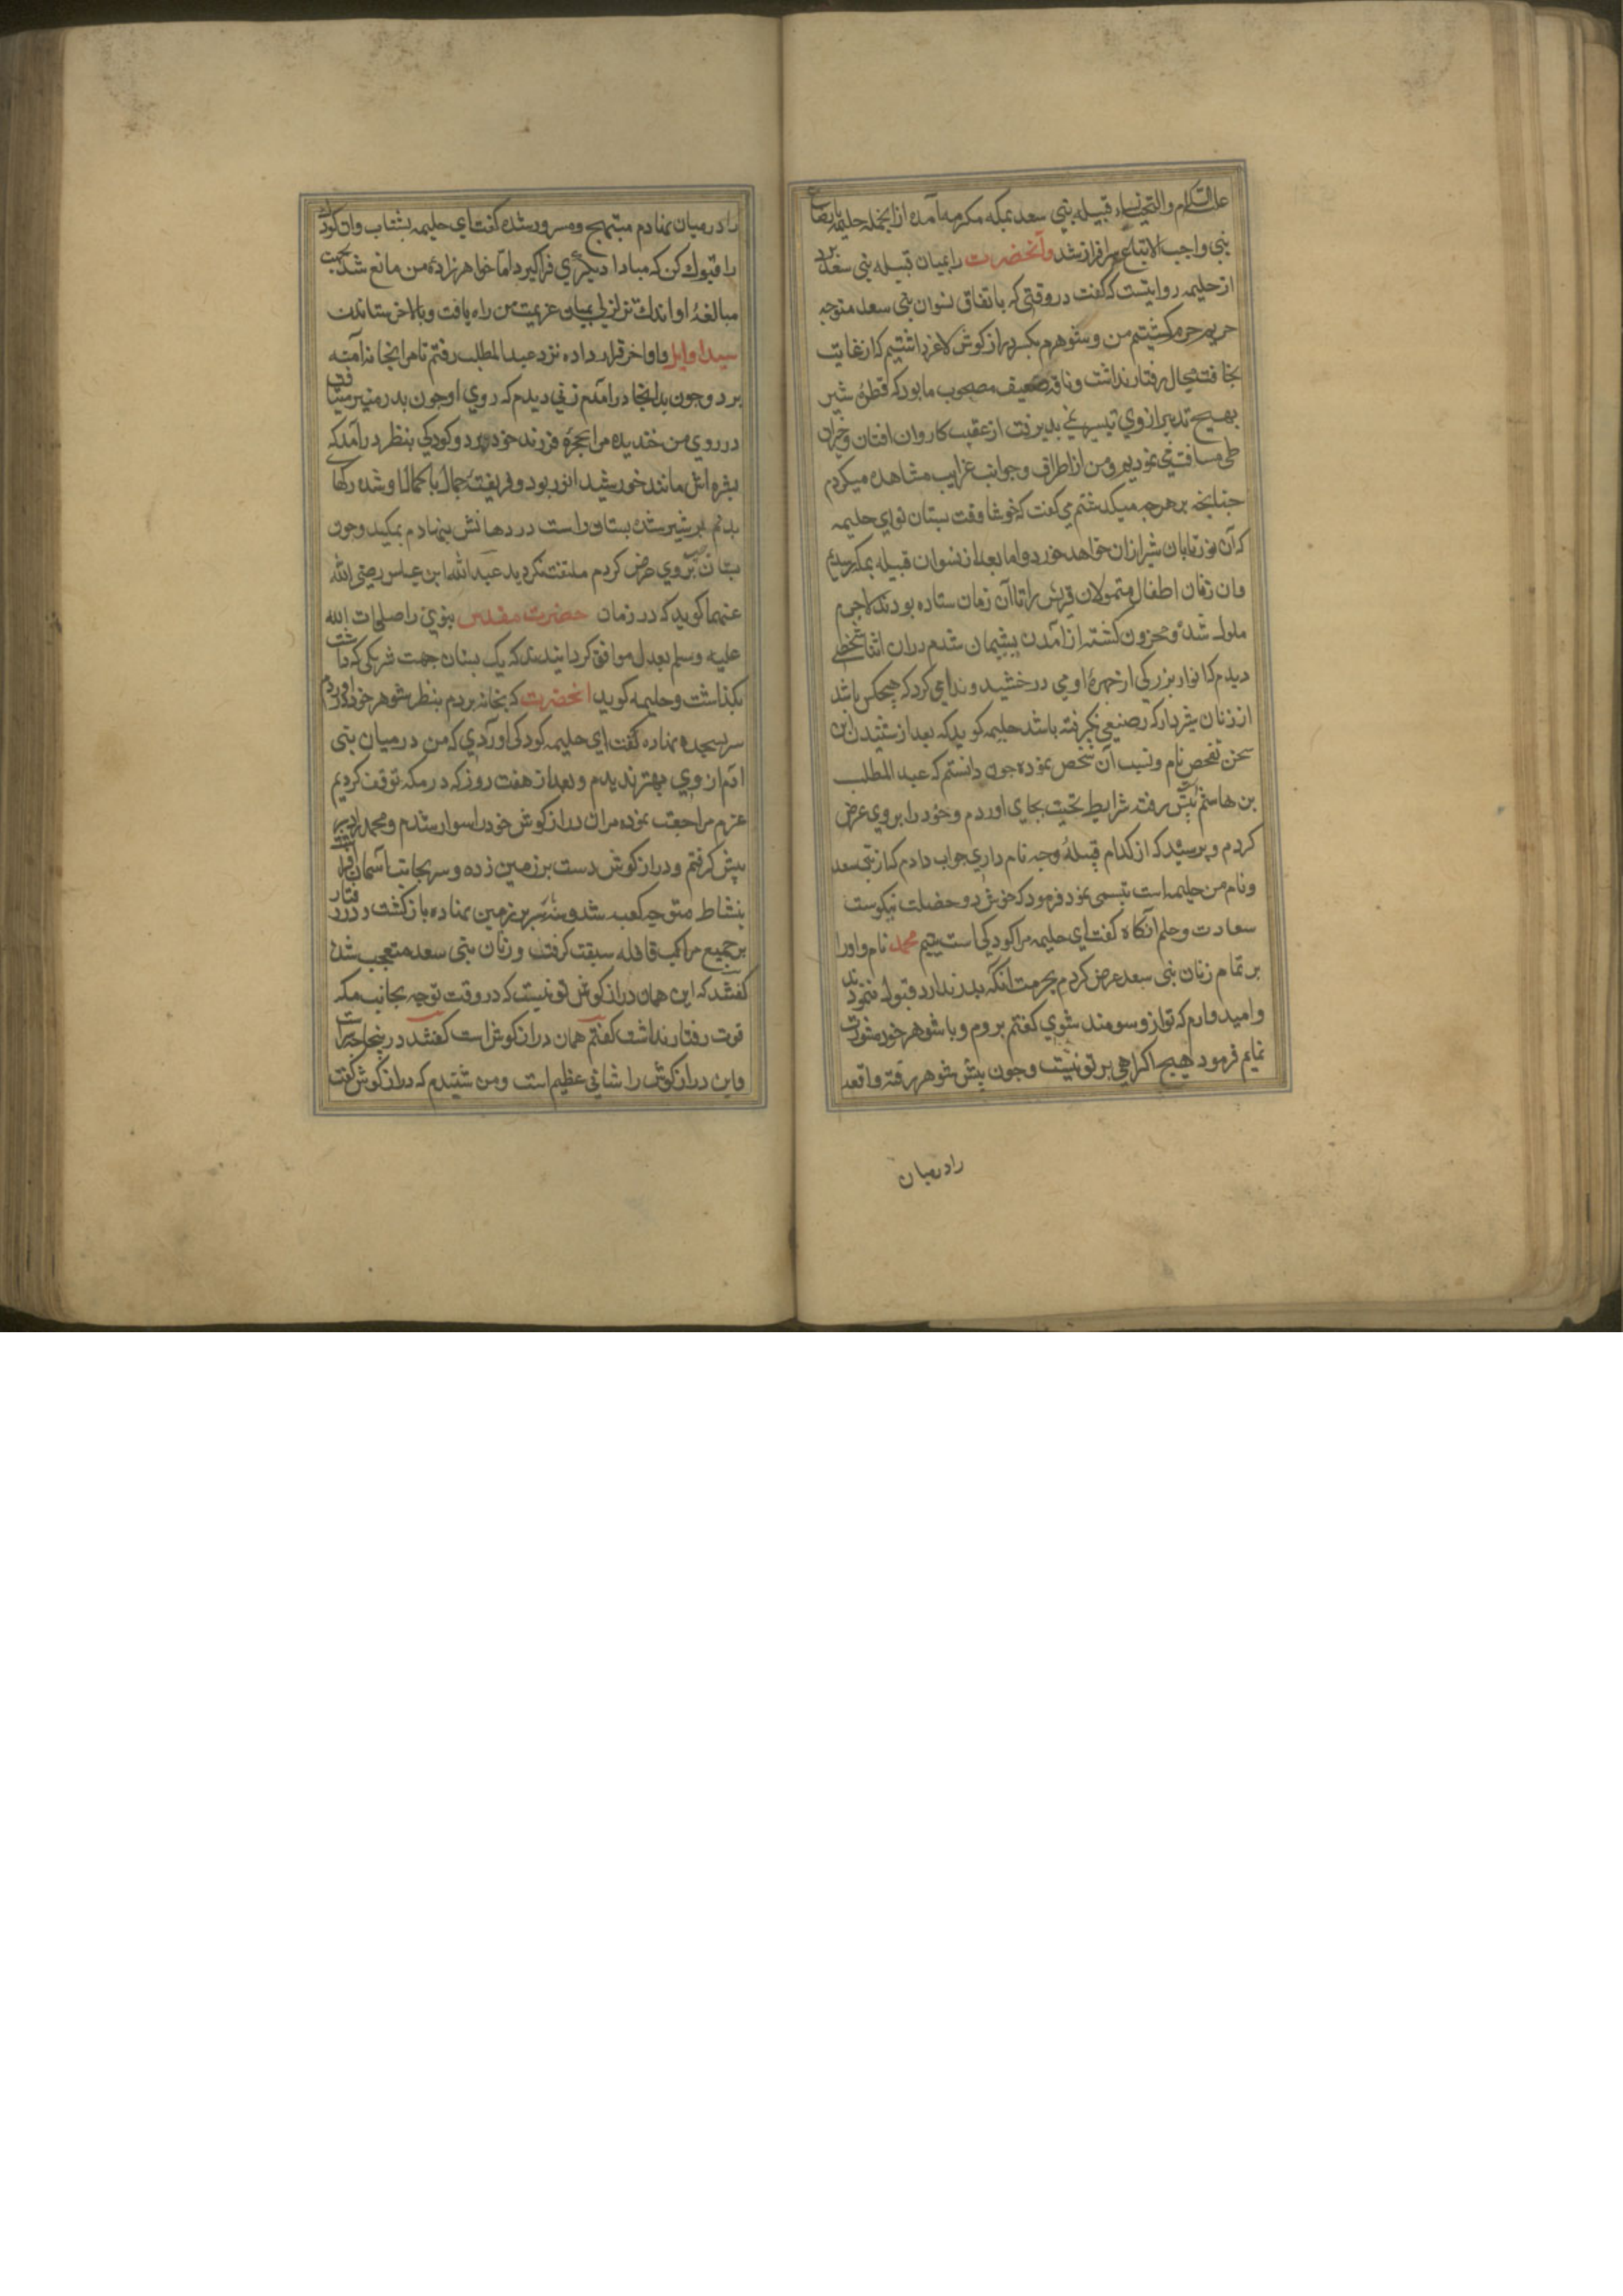 علیه السلام والتحیة نساء قبیله بنی سعد بمکه مکرمه آمده ازانجمله حلیمه بارضاع
نبی واجب الاتباع سرافراز شد وآنحضرت را بمیان قبیله بنی سعد برد
از حلیمه روایتست که گفت در وقتی که باتفاق نسوان بنی سعد متوجه
حریم حرم گشتیم من و شوهرم یکسر دراز کوش لاغر داشتیم که از غایت
نحافت مجال رفتار نداشت و ناقه ضعیف مصحوب ما بود که قطرهٔ شیر
بهیچ تدبیر از وی تیسیر نمی بذیرفت از عقب کاروان افتان وخیزان
طی مسافت می نمودیم ومن از اطراف وجوانب غرایب مشاهده میکردم
جنانجه بر هرجه میکذشتم می کفت که خوشا وقت بستان تو ای حلیمه
که آن نور تابان شیر ازان خواهد خورد واما بعد از نسوان قبیله بمکه رسیدیم
وان زنان اطفال متمولان قریش را تا آن زمان ستاده بودند لاجرم
ملول شده ومحزون کشته از آمدن بشیمان شدم دران اثنا شخصی
دیدم که انوار بزرکی از جهرهٔ او می درخشید وندا می کرد که هیجکس باشد
از زنان شیردار که رضیعی نکرفته باشد حلیمه کوید که بعد از شنیدن این
سخن تفحص نام ونسب آن شخص نموده جون دانستم که عبد المطلب
بن هاشم بیش رفته شرایط تحیت بجای اوردم وخود را بر وی عرض
کردم و برسید که از کدام قبیلهٔ وجه نام داری جواب دادم که از بنی سعد
ونام من حلیمه است تبسمی نمود فرمود که خوش دو خصلت نیکوست
سعادت وحلم آنکاه کفت ای حلیمه مرا کودکی است یتیم محمد نام واورا
بر تمام زنان بنی سعد عرض کردم بجرمت آنکه بدر ندارد قبول ننمودند
وامیدوارم که تو ازو سودمند شوی کفتم بروم وبا شوهر خود مشورت
نمایم فرمود هیچ اکراهی بر تو نیست وجون بیش شوهر رفته واقعه
را درمیان
را درمیان نهادم مبتهج ومسرور شده کفت ای حلیمه بشتاب وان کودک
را قبول کن که مبادا دیکری فراکیرد اما خواهرزادهٔ من مانع شد بجهت
مبالغهٔ او اندک تزلزلی بمیان عزیمت من راه یافت وبالاخر ستاندن
سید اوایل واواخر قرار داده نزد عبد المطلب رفتم تا مرا بخانه آمنه
برد وجون بدانجا درامدم زنی دیدم که روی او جون بدر منیر میتافت
در روی من خندیده مرا بحجرهٔ فرزند خود برد وکودکی بنظر درآمد که
بشره اش مانند خورشید انور بود وفریفتهٔ جمال باکمال او شده رکها
بدنم بر شیر شده بستان راست در دهانش بنهادم بمکید وجون
بستان جب بروی عرض کردم ملتفت نکردید عبد الله ابن عباس رضی الله
عنهما کوید که در زمان حضرت مقدس نبوی را صلوات الله
علیه وسلم بعدل موافق کردانیدند که یک بستان جهت شریکی که داشت
بکذاشت وحلیمه کوید انحضرت که بخانه بردم بنظر شوهر خود دراوردم
سر بسجده نهاده کفت ای حلیمه کودکی اوردی که من درمیان بنی
ادم از وی بهتر ندیدم وبعد از هفت روز که در مکه توقف کردیم
عزم مراجعت نموده بران دراز کوش خود را سوار شدم ومحمد را در
بیش کرفتم ودراز کوش دست بر زمین زده وسر بجانب آسمان افراشته
بنشاط متوجه کعبه شد وسه سر بر زمین نهاده بازکشت ودر رفتار
بر جمیع مراکب قافله سبقت کرفت وزنان بنی سعد متعجب شدن
کفتند که این همان دراز کوش تو نیست که در وقت توجه بجانب مکه
قوت رفتار نداشت کفتم همان دراز کوش است کفتند در ینجا سرّیست
واین دراز کوش را شانی عظیم است ومن شنیدم که دراز کوش کفت